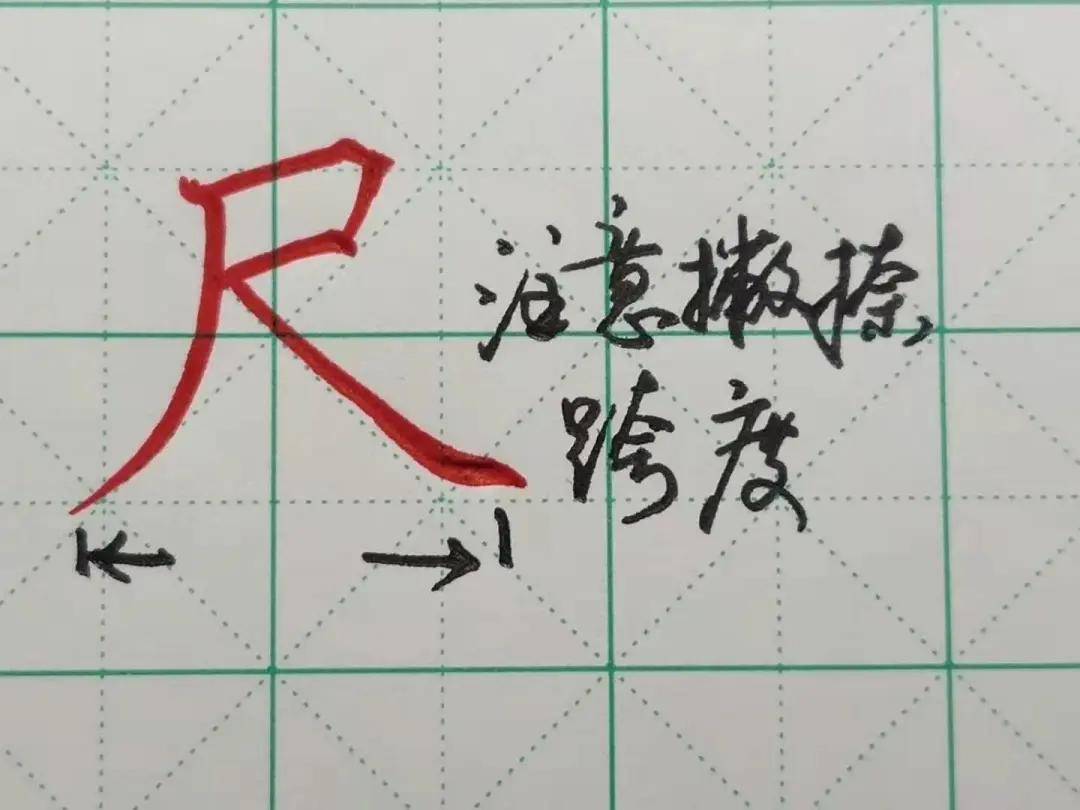 尺
注意撇捺
跨度